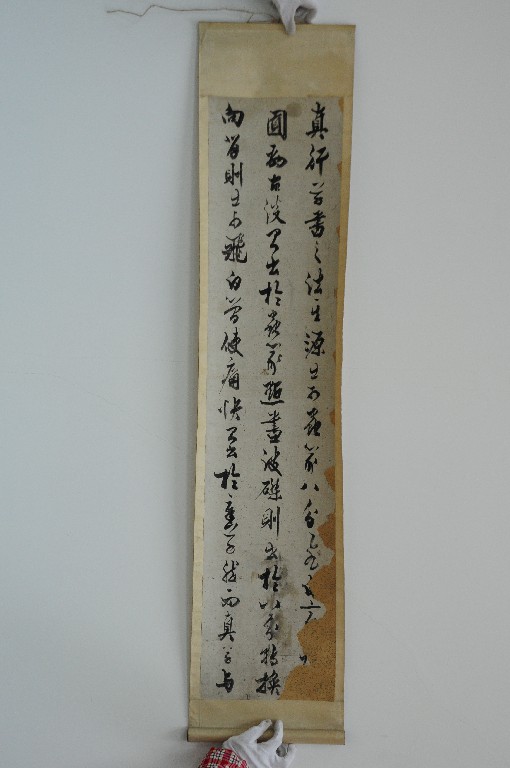 真行草書之法其源出於蟲篆八分飛白章
圓勁古淡則出於蟲篆點畫波磔則出於八分轉換
向背則出於飛白簡便痛快則出於章草然而真草與